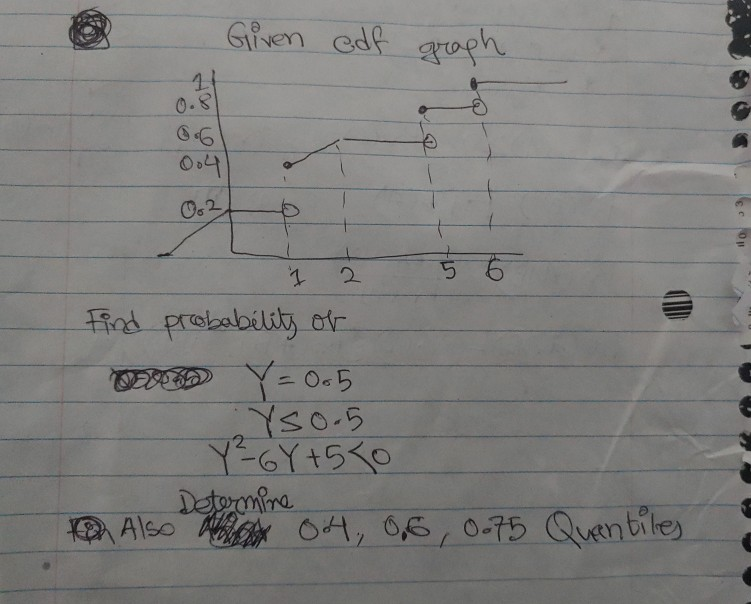 Given cdf graph
1
0.8
0.6
0.4
0.2
1 2 5 6
Find probability of
Y = 0.5
Y ≤ 0.5
Y² - 6Y + 5 < 0
Determine
Also 0.4, 0.6, 0.75 Quantiles